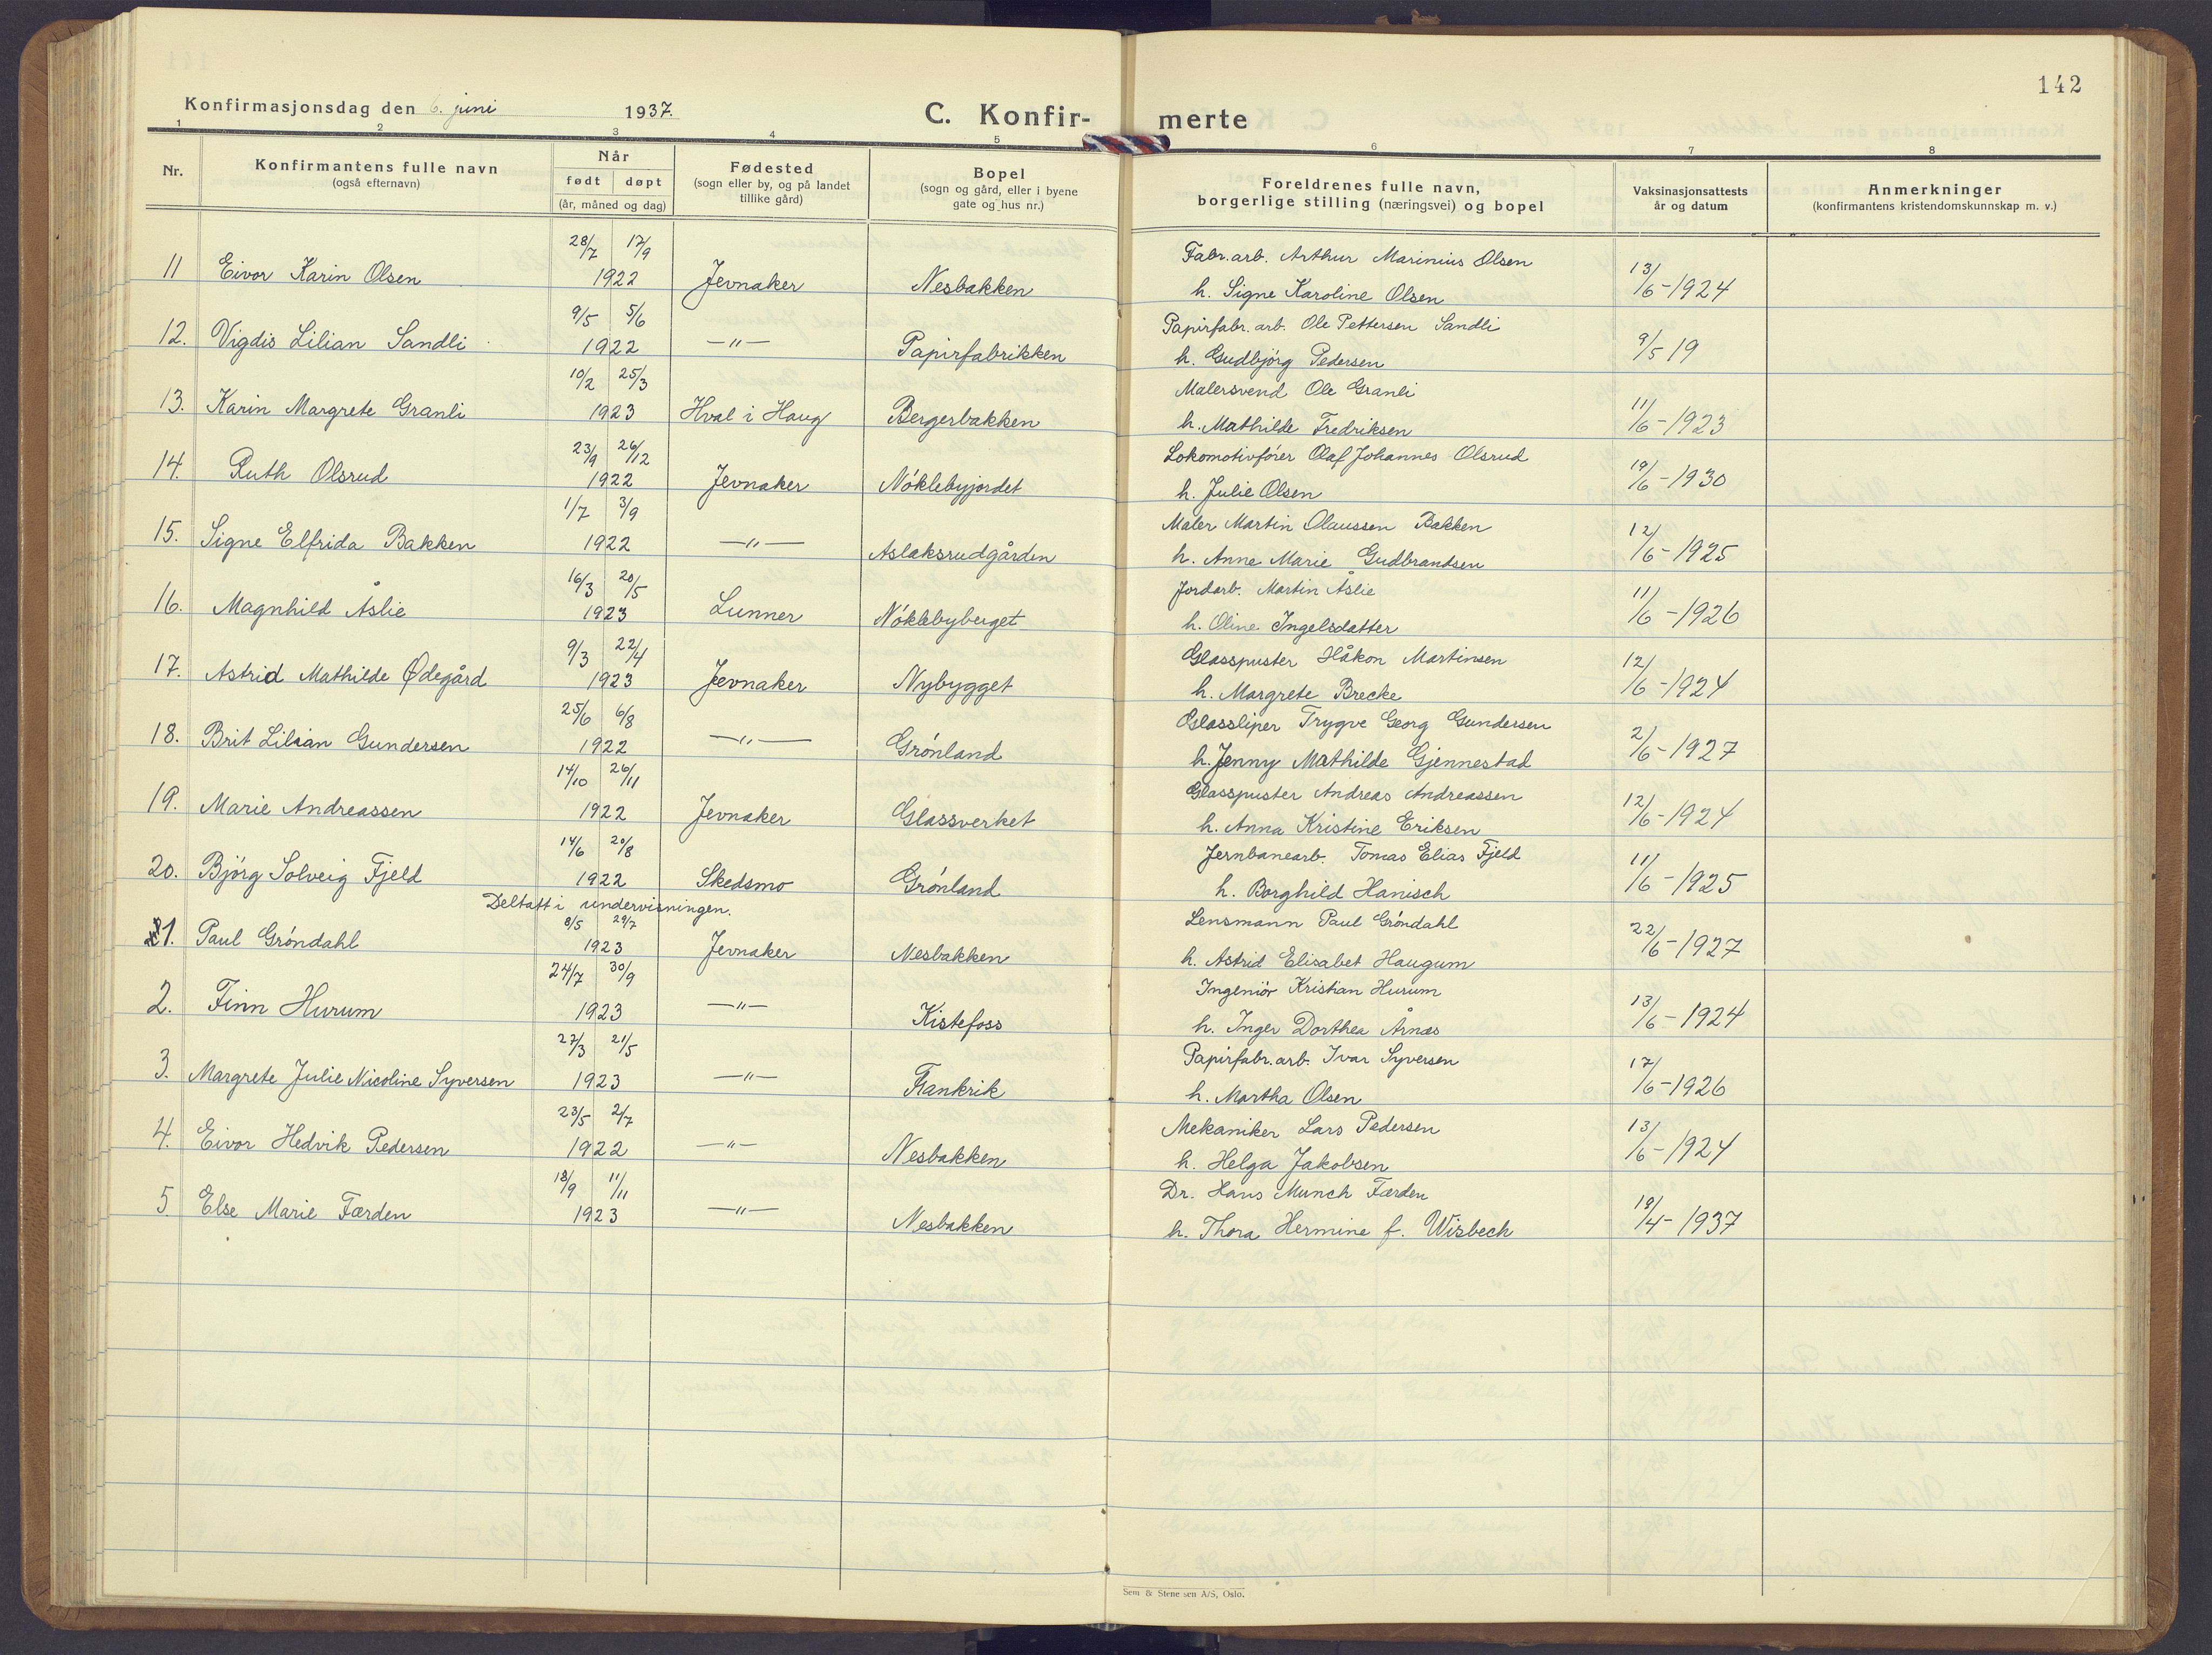 142
Konfirmasjonsdag den 6. juni 1937.
C. Konfir- merte
1 2 3 4 5 6 7 8
Nr.
Konfirmantens fulle navn
(også efternavn)
Når
født døpt
(år, måned og dag)
Fødested
(sogn eller by, og på landet
tillike gård)
Bopel
(sogn og gård, eller i byene
gate og hus nr.)
Foreldrenes fulle navn,
borgerlige stilling (næringsvei) og bopel
Vaksinasjonsattests
år og datum
Anmerkninger
(konfirmantens kristendomskunnskap m. v.)
28/7 17/9 Fabr.arb. Arthur Marinius Olsen
11 Eivor Karin Olsen 1922 Jevnaker Nesbakken h. Signe Karoline Olsen 13/6-1924
9/5 5/6 Papirfabr. arb. Ole Pettersen Sandli
12. Vigdis Lilian Sandli 1922 —"— Papirfabrikken h. Gudbjörg Pedersen 9/5 19
10/2 25/3 Malersvend Ole Granli
13. Karin Margrete Granli 1923 Hval i Haug Bergerbakken h. Mathilde Fredriksen 11/6-1923
23/9 26/12 Lokomotivfórer Olaf Johannes Olsrud
14. Ruth Olsrud 1922 Jevnaker Nóklebyjordet h. Julie Olsen 19/6-1930
1/7 3/9 Maler Martin Olaussen Bakken
15. Signe Elfrida Bakken 1922 —"— Aslaksrudgården h. Anne Marie Gudbrandsen 12/6-1925
16/3 20/5 Jordarb. Martin Åslie
16. Magnhild Åslie 1923 Lunner Nóklebyberget h. Oline Ingelsdatter 11/6-1926
9/3 22/4 Glasspuster Håkon Martinsen
17. Astrid Mathilde Ødegård 1923 Jevnaker Nybygget h. Margrete Brecke 12/6-1924
25/6 6/8 Glassliper Trygve Georg Gundersen
18. Brit Lilian Gundersen 1922 —"— Grónland h. Jenny Mathilde Gjennestad 2/6-1927
14/10 26/11 Glasspuster Andreas Andreassen
19. Marie Andreassen 1922 Jevnaker Glassverket h. Anna Kristine Eriksen 12/6-1924
14/6 20/8 Jernbanearb. Tomas Elias Fjeld
20. Björg Solveig Fjeld 1922 Skedsmo Grónland h. Borghild Hanisch 11/6-1925
Deltatt i undervisningen.
8/5 29/7 Lensmann Paul Gróndahl
1. Paul Gróndahl 1923 Jevnaker Nesbakken h. Astrid Elisabet Haugum 22/6-1927
24/7 30/9 Ingeniör Kristian Hurum
2. Finn Hurum 1923 —"— Kistefoss h. Inger Dorthea Årnæs 13/6-1924
27/3 21/5 Papirfabr. arb. Ivar Syversen
3. Margrete Julie Nicoline Syversen 1923 —"— Frankrik h. Martha Olsen 17/6-1926
23/5 2/7 Mekaniker Lars Pedersen
4. Eivor Hedvik Pedersen 1922 —"— Nesbakken h. Helga Jakobsen 13/6-1924
18/9 11/11 Dr. Hans Munch Færden
5. Else Marie Færden 1923 —"— Nesbakken h. Thora Hermine f. Wisbech 19/4-1937
Sem & Stenersen A/S, Oslo.